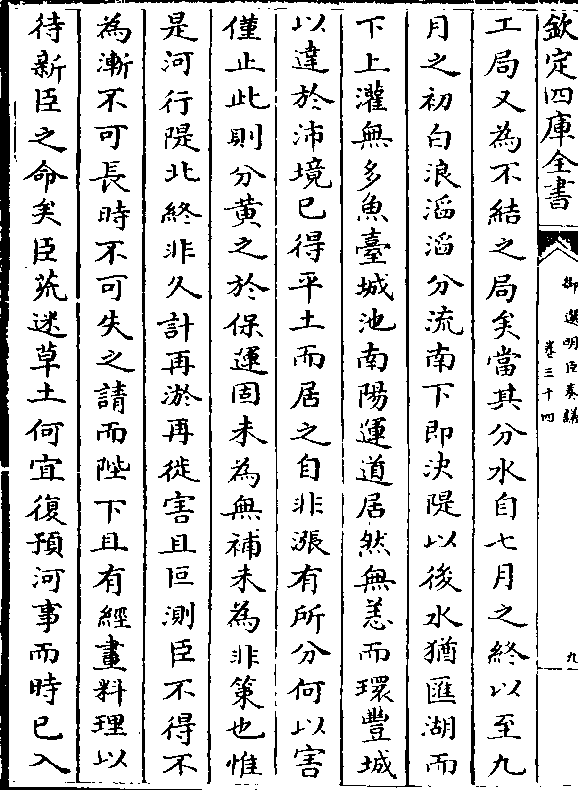 欽定四庫全書
御選明臣奏議
卷三十四
九
工局又為不結之局矣當其分水自七月之終以至九
月之初白浪滔滔分流南下即決隄以後水猶匯湖而
下上灌無多魚臺城池南陽運道居然無恙而環豐城
以達於沛境已得平土而居之自非漲有所分何以害
僅止此則分黃之於保運固未為無補未為非策也惟
是河行隄北終非久計再淤再徙害且叵測臣不得不
為漸不可長時不可失之請而陛下且有經畫料理以
待新臣之命矣臣荒迷草土何宜復預河事而時已入